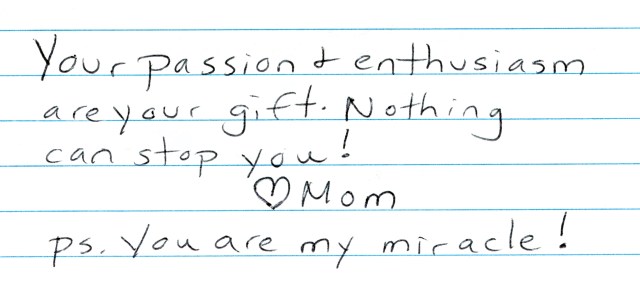 Your passion & enthusiasm
are your gift. Nothing
can stop you!
♡Mom
ps. You are my miracle!